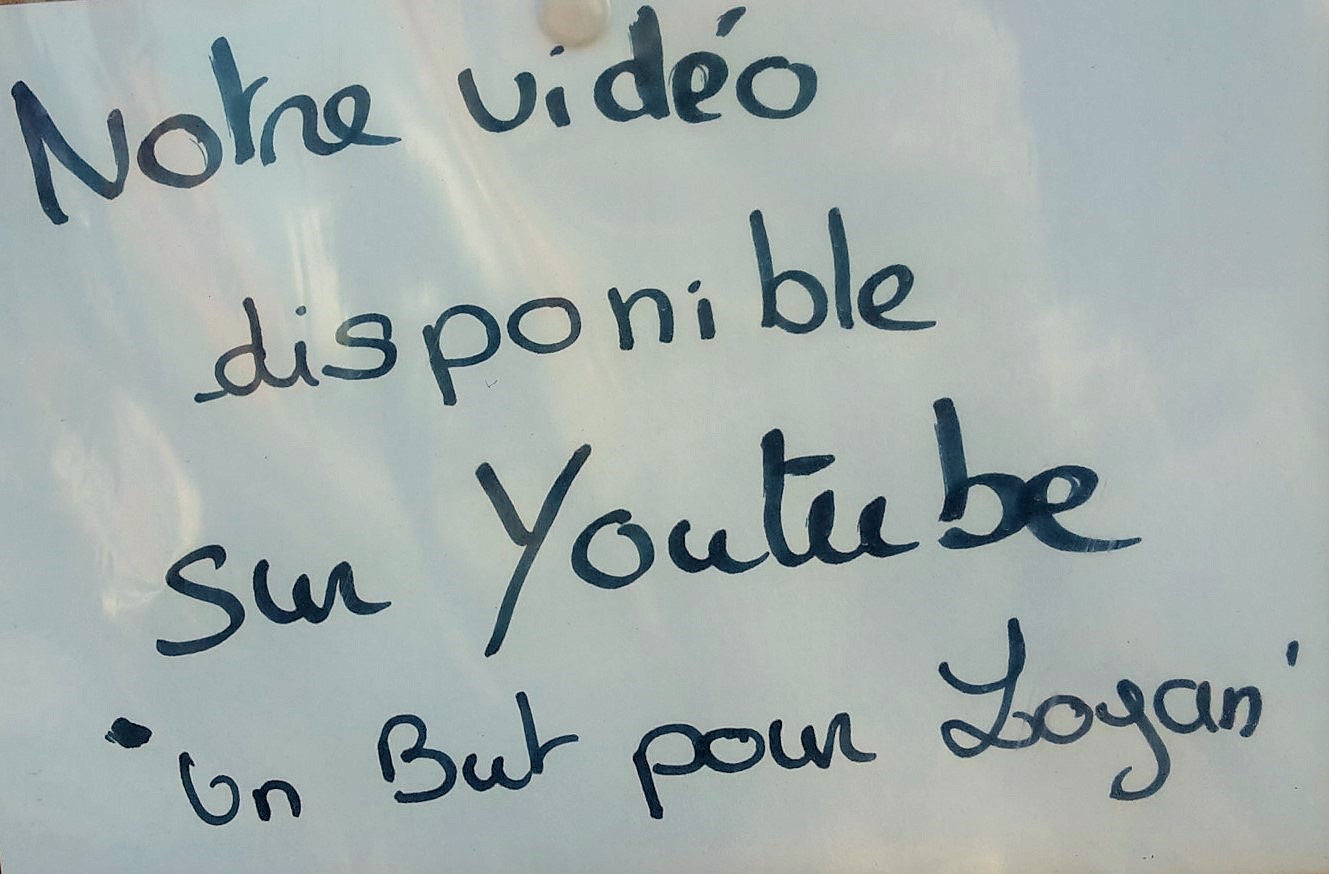 Notre vidéo
disponible
sur Youtube
"Un But pour Loyan'